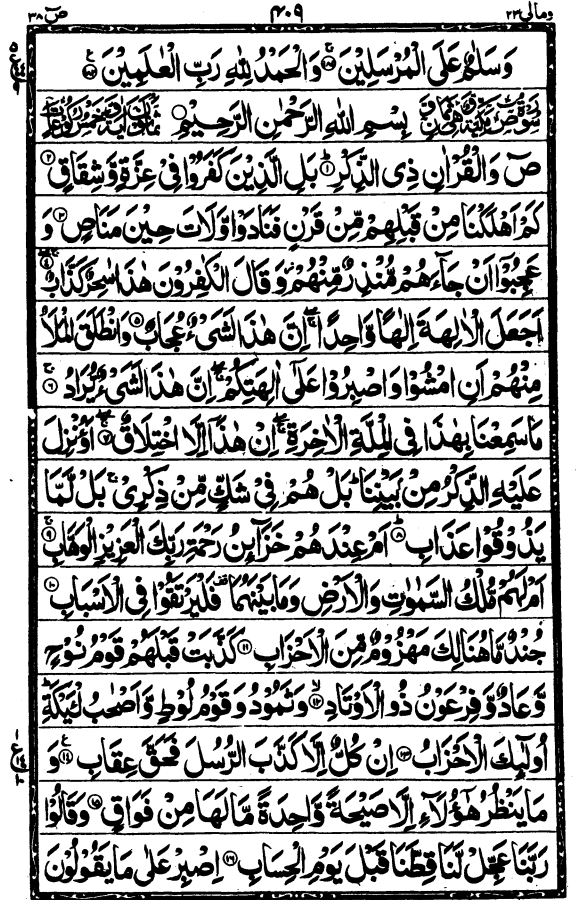 ومالی ۲۳ ۴۰۹ صٓ ۳۸
وَسَلٰمٌ عَلَى الْمُرْسَلِیْنَ ۝۱۸۱ وَالْحَمْدُ لِلّٰهِ رَبِّ الْعٰلَمِیْنَ ۝۱۸۲
بِسْمِ اللهِ الرَّحْمٰنِ الرَّحِیْمِ
صٓ وَالْقُرْاٰنِ ذِی الذِّكْرِ ۝۱ بَلِ الَّذِیْنَ كَفَرُوْا فِیْ عِزَّةٍ وَّشِقَاقٍ ۝۲
كَمْ اَهْلَكْنَا مِنْ قَبْلِهِمْ مِّنْ قَرْنٍ فَنَادَوْا وَّلَاتَ حِیْنَ مَنَاصٍ ۝۳ وَ
عَجِبُوْۤا اَنْ جَآءَهُمْ مُّنْذِرٌ مِّنْهُمْ وَقَالَ الْكٰفِرُوْنَ هٰذَا سٰحِرٌ كَذَّابٌ ۝۴
اَجَعَلَ الْاٰلِهَةَ اِلٰهًا وَّاحِدًا اِنَّ هٰذَا لَشَیْءٌ عُجَابٌ ۝۵ وَانْطَلَقَ الْمَلَاُ
مِنْهُمْ اَنِ امْشُوْا وَاصْبِرُوْا عَلٰۤی اٰلِهَتِكُمْ اِنَّ هٰذَا لَشَیْءٌ یُّرَادُ ۝۶
مَا سَمِعْنَا بِهٰذَا فِی الْمِلَّةِ الْاٰخِرَةِ اِنْ هٰذَاۤ اِلَّا اخْتِلَاقٌ ۝۷ ءَاُنْزِلَ
عَلَیْهِ الذِّكْرُ مِنْۢ بَیْنِنَا بَلْ هُمْ فِیْ شَكٍّ مِّنْ ذِكْرِیْ بَلْ لَّمَّا
یَذُوْقُوْا عَذَابِ ۝۸ اَمْ عِنْدَهُمْ خَزَآئِنُ رَحْمَةِ رَبِّكَ الْعَزِیْزِ الْوَهَّابِ ۝۹
اَمْ لَهُمْ مُّلْكُ السَّمٰوٰتِ وَالْاَرْضِ وَمَا بَیْنَهُمَا فَلْیَرْتَقُوْا فِی الْاَسْبَابِ ۝۱۰
جُنْدٌ مَّا هُنَالِكَ مَهْزُوْمٌ مِّنَ الْاَحْزَابِ ۝۱۱ كَذَّبَتْ قَبْلَهُمْ قَوْمُ نُوْحٍ
وَّعَادٌ وَّفِرْعَوْنُ ذُو الْاَوْتَادِ ۝۱۲ وَثَمُوْدُ وَقَوْمُ لُوْطٍ وَّاَصْحٰبُ لْـَٔیْكَةِ
اُولٰٓئِكَ الْاَحْزَابُ ۝۱۳ اِنْ كُلٌّ اِلَّا كَذَّبَ الرُّسُلَ فَحَقَّ عِقَابِ ۝۱۴ وَ
مَا یَنْظُرُ هٰۤؤُلَآءِ اِلَّا صَیْحَةً وَّاحِدَةً مَّا لَهَا مِنْ فَوَاقٍ ۝۱۵ وَقَالُوْا
رَبَّنَا عَجِّلْ لَّنَا قِطَّنَا قَبْلَ یَوْمِ الْحِسَابِ ۝۱۶ اِصْبِرْ عَلٰی مَا یَقُوْلُوْنَ